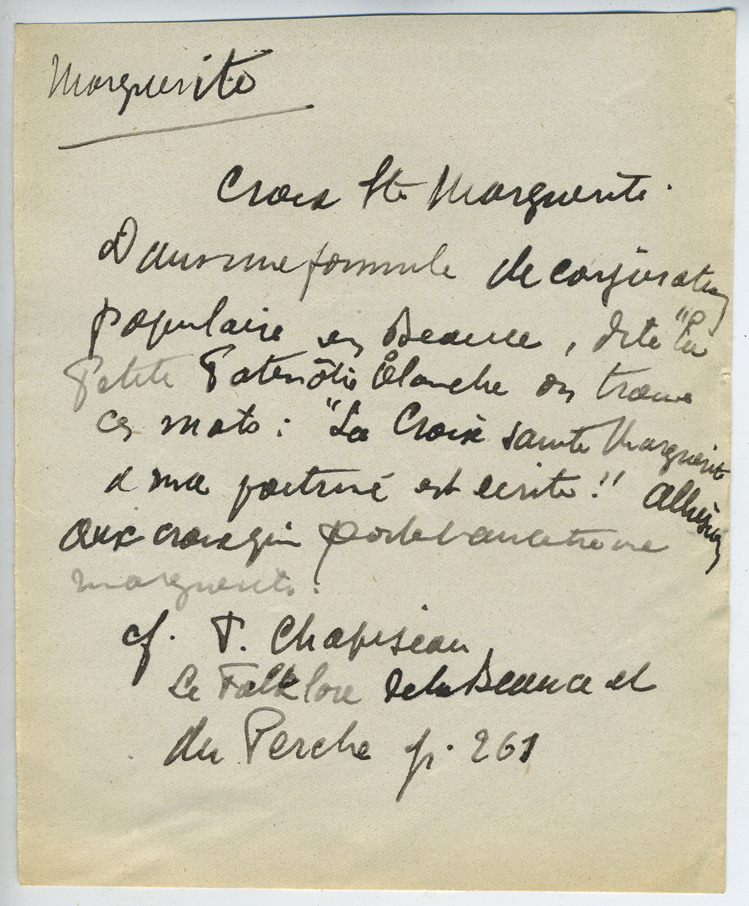 Marguerite
Croix Ste Marguerite.
Dans une formule de conjuration
populaire en Beauce, dite "La
Petite Patenôtre Blanche on trouve
ces mots : "La Croix sainte Marguerite
à ma poitrine est écrite !" Allusion
aux croix qu'on porte
marguerite.
cf. F. Chapiseau
Le Folklore de la Beauce et
du Perche p. 261